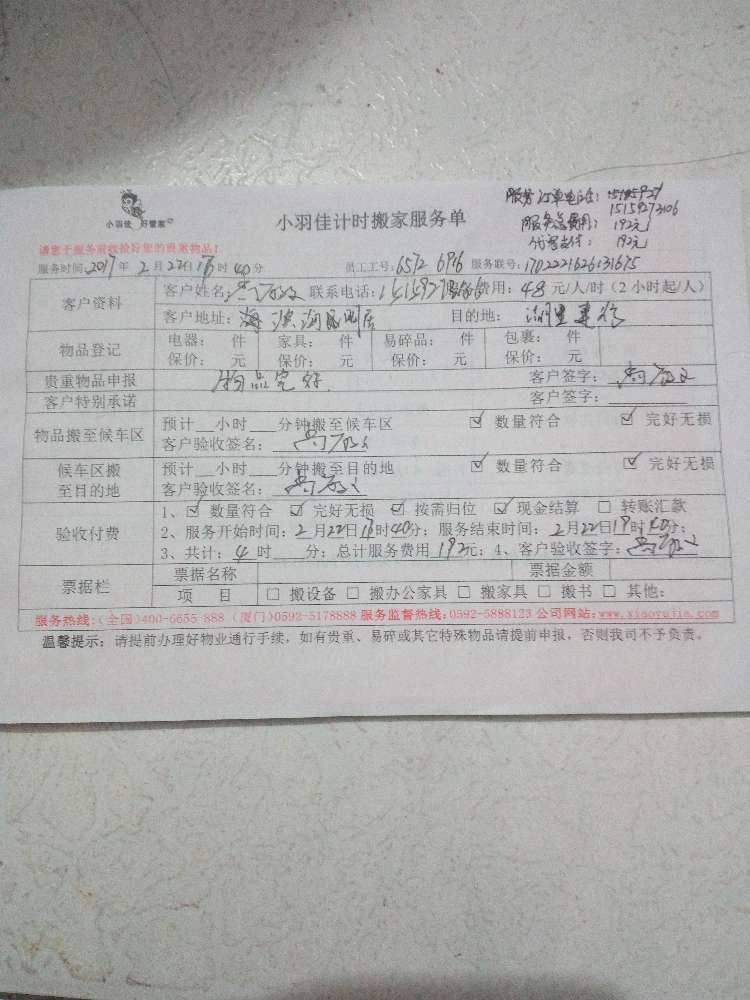 小羽佳 好管家
小羽佳计时搬家服务单
服务订单电话:
15159273106
服务总费用: 192元
代写支付: 192元
请您于服务前收拾好您的贵重物品!
服务时间:2017年2月22日 时40分 员工工号:6572 6916 服务联号:1702221626131675
客户资料
客户姓名: 联系电话: 服务费用:48元/人/时(2小时起/人)
客户地址:海沧 居 目的地:湖里
物品登记
电器: 件 家具: 件 易碎品: 件 包裹: 件
保价: 元 保价: 元 保价: 元 保价: 元
贵重物品申报 物品完好 客户签字:
客户特别承诺 客户签字:
物品搬至候车区
预计__小时___分钟搬至候车区 ☑ 数量符合 ☑ 完好无损
客户验收签名:
候车区搬至目的地
预计__小时___分钟搬至目的地 ☑ 数量符合 ☑ 完好无损
客户验收签名:
验收付费
1、☑ 数量符合 ☑ 完好无损 ☑ 按需归位 ☑ 现金结算 □ 转账汇款
2、服务开始时间:2月22日 时40分;服务结束时间:2月22日 时40分;
3、共计:4时___分;总计服务费用192元;4、客户验收签字:
票据栏
票据名称 票据金额
项 目 □ 搬设备 □ 搬办公家具 □ 搬家具 □ 搬书 □ 其他:
服务热线:(全国)400-6655-888 (厦门)0592-5178888 服务监督热线:0592-5888123 公司网站:www.xiaoyujia.com
温馨提示:请提前办理好物业通行手续,如有贵重、易碎或其它特殊物品请提前申报,否则我司不予负责。